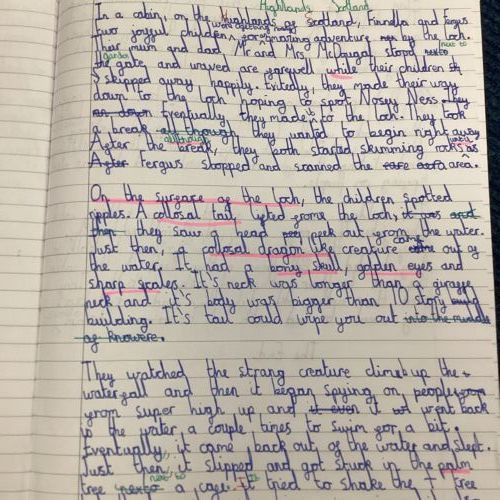 Highlands Scotland
In a cabin, on the Highlands of Scotland, Kinnella and Fergus
were getting ready
two joyful children, for amazing adventure by the loch.
Their mum and dad, Mr and Mrs McDougal stood next to
garden
the gate and waved are farewell while their children
skipped away happily. Excitedly, they made their way
down to the loch hoping to spot Nosey Ness. they
Eventually they made it to the loch. They took
a break although they wanted to begin right away
although
After the break, they both started skimming rocks as
After Fergus stopped and scanned the area.
On the surface of the loch, the children spotted
ripples. A collosal tail, lifted frome the loch, it was and
then they saw head peek out from the water.
came
Just then, a collosal dragon like creature out of
the water. It had a bony skull, golden eyes and
sharp scales. It's neck was longer than a giraffe
neck and it's body was bigger than 10 story
building. It's tail could wipe you out into the middle
of knowere.
They watched the strang creature climb up the
waterfall and then it began spying on people
from super high up and it went back
in the water a couple times to swim for a bit.
Eventually, it came back out of the water and slept.
Just then, it slipped and got stuck in the
next to
tree next to a cage. It tried to shake the tree